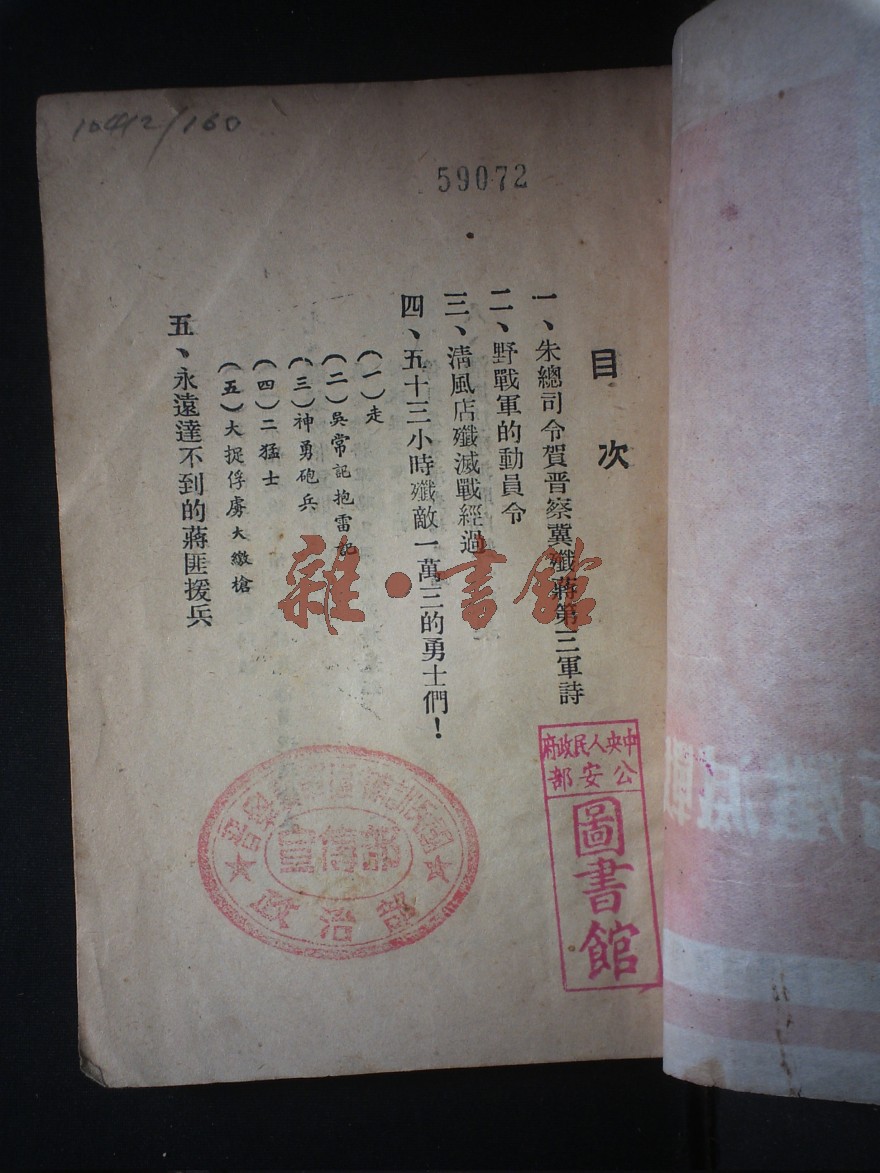 10412/160
59072
目次
一、朱總司令賀晋察冀殲蔣第三軍詩
二、野戰軍的動員令
三、淸風店殲滅戰經過
四、五十三小時殲敵一萬三的勇士們！
(一)走
(二)吳常記抱雷記
(三)神勇砲兵
(四)二猛士
(五)大捉俘虜大繳槍
五、永遠達不到的蔣匪援兵
雜·書館
中央人民政府
公安部
圖書館
圖書館